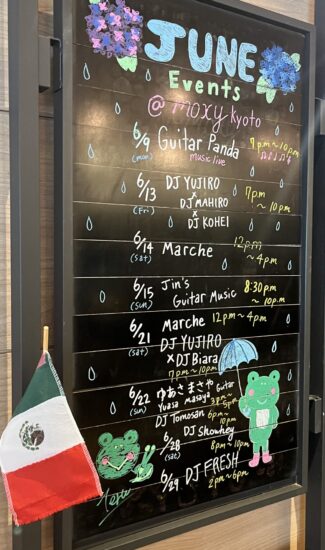 JUNE
Events
@ moxy kyoto
6/9 (mon) Guitar Panda 7pm ~ 10pm
music live ♫♩♫♩
6/13 (Fri) DJ YUJIRO
×
DJ MAHIRO
×
DJ KOHEI
7pm
~ 10pm
6/14 (Sat) Marche 12pm
~ 4pm
6/15 (Sun) Jin's
Guitar Music
8:30pm
~ 10pm
6/21 (Sat) Marche 12pm ~ 4pm
DJ YUJIRO
× DJ Biara
7pm ~ 10pm
6/22 (Sun) ゆあさまさや Guitar
Yuasa masaya
DJ Tomosan 6pm ~
10pm
6/28 (Sat) DJ Showhey
8pm ~ 10pm
6/29 DJ FRESH
2pm ~ 6pm